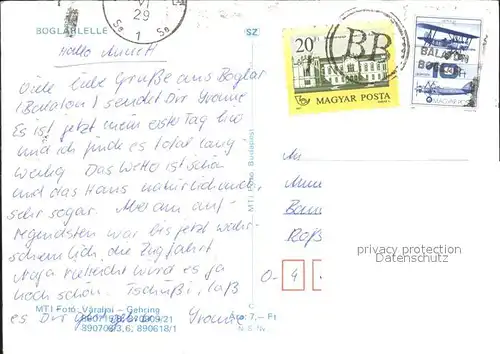 VI
29
1
Sa Sa
BOGLÁRLELLE
SZ
Hallo Annett
Viele liebe Grüße aus Boglar
(Balaton) sendet Dir Yvonne
Es ist jetzt mein erster Tag hier
und ich finde es total lang
weilig Das Wetter ist schön
und das Haus natürlich auch,
sehr sogar. Aber am auf-
regendsten war bis jetzt wahr-
scheinlich die Zugfahrt
Naja vielleicht wird es ja
noch schön. Tschüßi, laß
es Dir gut gehen Yvonne
MTI Foto: Váraljai – Gehring
890618/1
Ára: 7,– Ft
MTI
Budapest
20Ft
MAGYAR POSTA
BB
BALATON
MAGYAR
An
Ann
Röß
O- 4
privacy protection
Datenschutz